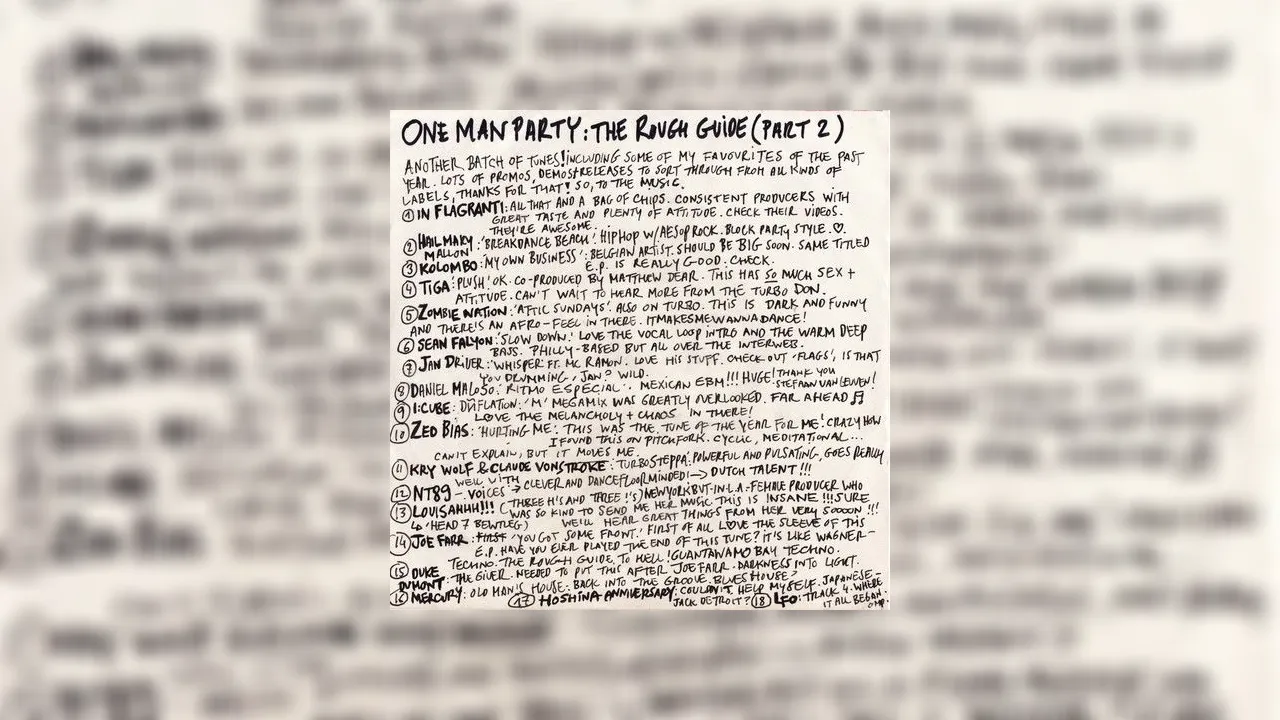 ONE MAN PARTY: THE ROUGH GUIDE (PART 2)
ANOTHER BATCH OF TUNES! INCLUDING SOME OF MY FAVOURITES OF THE PAST
YEAR. LOTS OF PROMOS, DEMOS+RELEASES TO SORT THROUGH FROM ALL KINDS OF
LABELS, THANKS FOR THAT! SO, TO THE MUSIC.
① IN FLAGRANTI: ALL THAT AND A BAG OF CHIPS. CONSISTENT PRODUCERS WITH
GREAT TASTE AND PLENTY OF ATTITUDE. CHECK THEIR VIDEOS.
THEY'RE AWESOME.
② HAIL MARY MALLON: 'BREAKDANCE BEACH'. HIPHOP W/AESOP ROCK. BLOCK PARTY STYLE. ♡.
③ KOLOMBO: 'MY OWN BUSINESS': BELGIAN ARTIST. SHOULD BE BIG SOON. SAME TITLED
E.P. IS REALLY GOOD. CHECK.
④ TIGA: 'PLUSH' OK. CO-PRODUCED BY MATTHEW DEAR. THIS HAS SO MUCH SEX +
ATTITUDE. CAN'T WAIT TO HEAR MORE FROM THE TURBO DON.
⑤ ZOMBIE NATION: 'ATTIC SUNDAYS'. ALSO ON TURBO. THIS IS DARK AND FUNNY
AND THERE'S AN AFRO-FEEL IN THERE. ITMAKESMEWANNADANCE!
⑥ SEAN FALYON: 'SLOW DOWN.' LOVE THE VOCAL LOOP INTRO AND THE WARM DEEP
BASS. PHILLY-BASED BUT ALL OVER THE INTERWEB.
⑦ JAN DRIVER: 'WHISPER FT. MC RAMON. LOVE HIS STUFF. CHECK OUT 'FLAGS', IS THAT
YOU DRUMMING, JAN? WILD.
⑧ DANIEL MALOSO: 'RITMO ESPECIAL'. MEXICAN EBM!!! HUGE! THANK YOU
STEFAAN VAN LEUVEN!
⑨ I:CUBE: 'M' MEGAMIX WAS GREATLY OVERLOOKED. FAR AHEAD ♫
LOVE THE MELANCHOLY + CHAOS IN THERE!
⑩ ZED BIAS: 'HURTING ME'. THIS WAS THE TUNE OF THE YEAR FOR ME! CRAZY HOW
I FOUND THIS ON PITCHFORK. CYCLIC, MEDITATIONAL...
CAN'T EXPLAIN, BUT IT MOVES ME.
⑪ KRY WOLF & CLAUDE VONSTROKE: 'TURBOSTEPPA'. POWERFUL AND PULSATING, GOES REALLY
WELL WITH
⑫ NT89 - VOICES → CLEVER AND DANCEFLOORMINDED! → DUTCH TALENT!!!
⑬ LOUISAHHH!!! (THREE H'S AND THREE !'S) NEWYORKBUT-IN-L.A-FEMALE PRODUCER WHO
WAS SO KIND TO SEND ME HER MUSIC. THIS IS INSANE!!! SURE
WE'LL HEAR GREAT THINGS FROM HER VERY SOOOON!!!
⑭ JOE FARR: 'YOU GOT SOME FRONT.' FIRST OF ALL LOVE THE SLEEVE OF THIS
E.P. HAVE YOU EVER PLAYED THE END OF THIS TUNE? IT'S LIKE WAGNER-
TECHNO. THE ROUGH GUIDE, TO HELL! GUANTANAMO BAY TECHNO.
⑮ DUKE DUMONT: THE GIVER. NEEDED TO PUT THIS AFTER JOE FARR. DARKNESS INTO LIGHT.
⑯ MERCURY: OLD MAN'S HOUSE: BACK INTO THE GROOVE. BLUES HOUSE?
⑰ HOSHINA ANNIVERSARY: COULDN'T HELP MYSELF. JAPANESE-
JACK DETROIT? ⑱ LFO: TRACK 4. WHERE
IT ALL BEGAN.
OMP.